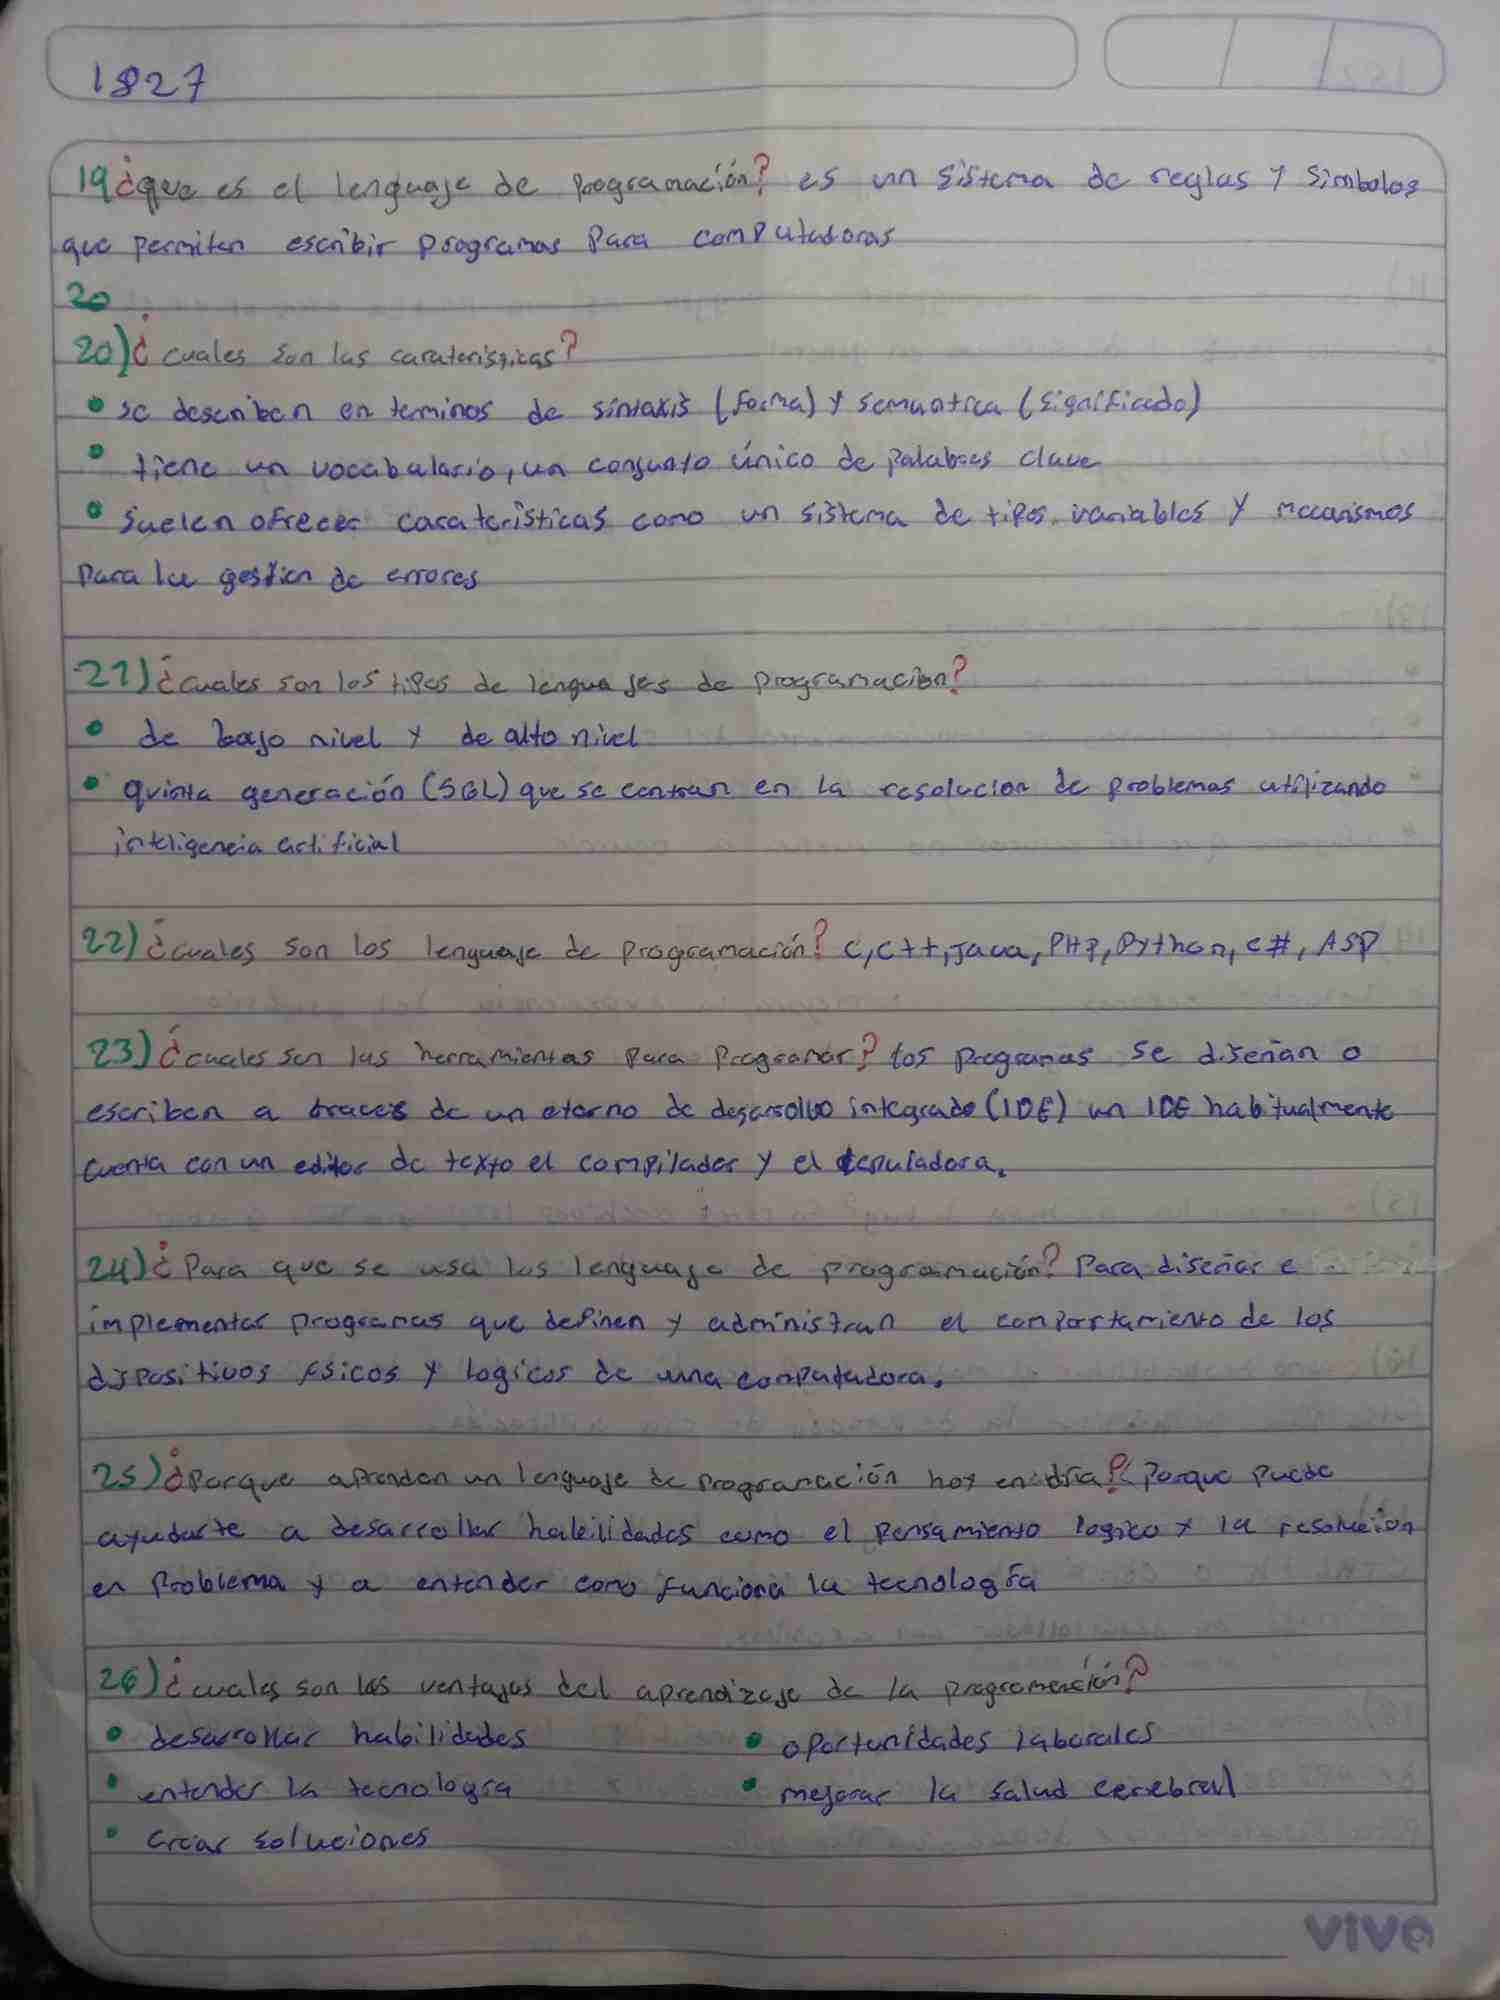 1827
19 ¿que es el lenguaje de programación? es un sistema de reglas y simbolos
que permiten escribir programas para computadoras
20
20) ¿cuales son las carateristicas?
• se describen en terminos de sintaxis (forma) y semantica (significado)
• tiene un vocabulario, un conjunto único de palabras clave
• suelen ofrecer caracteristicas como un sistema de tipos, variables y mecanismos
para la gestion de errores
21) ¿cuales son los tipos de lenguajes de programación?
• de bajo nivel y de alto nivel
• quinta generación (5GL) que se centran en la resolucion de problemas utilizando
inteligencia artificial
22) ¿cuales son los lenguaje de programación? C, C++, Java, PHP, Python, C#, ASP
23) ¿cuales son las herramientas para programar? los programas se diseñan o
escriben a traves de un etorno de desarrollo integrado (IDE) un IDE habitualmente
cuenta con un editor de texto el compilador y el
24) ¿Para que se usa los lenguaje de programación? Para diseñar e
implementar programas que definen y administran el comportamiento de los
dispositivos fsicos y logicos de una computadora.
25) ¿Porque aprenden un lenguaje de programación hoy en dia? Porque puede
ayudarte a desarrollar habilidades como el pensamiento logico y la resolucion
en problema y a entender como funciona la tecnologia
26) ¿cuales son las ventajas del aprendizaje de la programación?
• desarrollar habilidades • oportunidades laborales
• entender la tecnologia • mejorar la salud cerebral
• crear soluciones
vive